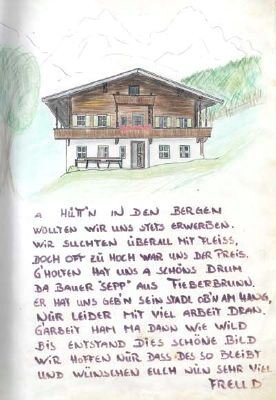 A HÜTT'N IN DEN BERGEN
WOLLTEN WIR UNS STETS ERWERBEN.
WIR SUCHTEN ÜBERALL MIT FLEISS,
DOCH OFT ZU HOCH WAR UNS DER PREIS.
G'HOLFEN HAT UNS A SCHÖNS DRUM
DA BAUER "SEPP" AUS FIEBERBRUNN.
ER HAT UNS GEB'N SEIN STADL OB'N AM HANG,
NUR LEIDER MIT VIEL ARBEIT DRAN.
GARBEIT HAM MA DANN WIE WILD
BIS ENTSTAND DIES SCHÖNE BILD
WIR HOFFEN NUR DASS DES SO BLEIBT
UND WÜNSCHEN EUCH NUN SEHR VIEL
FREUD